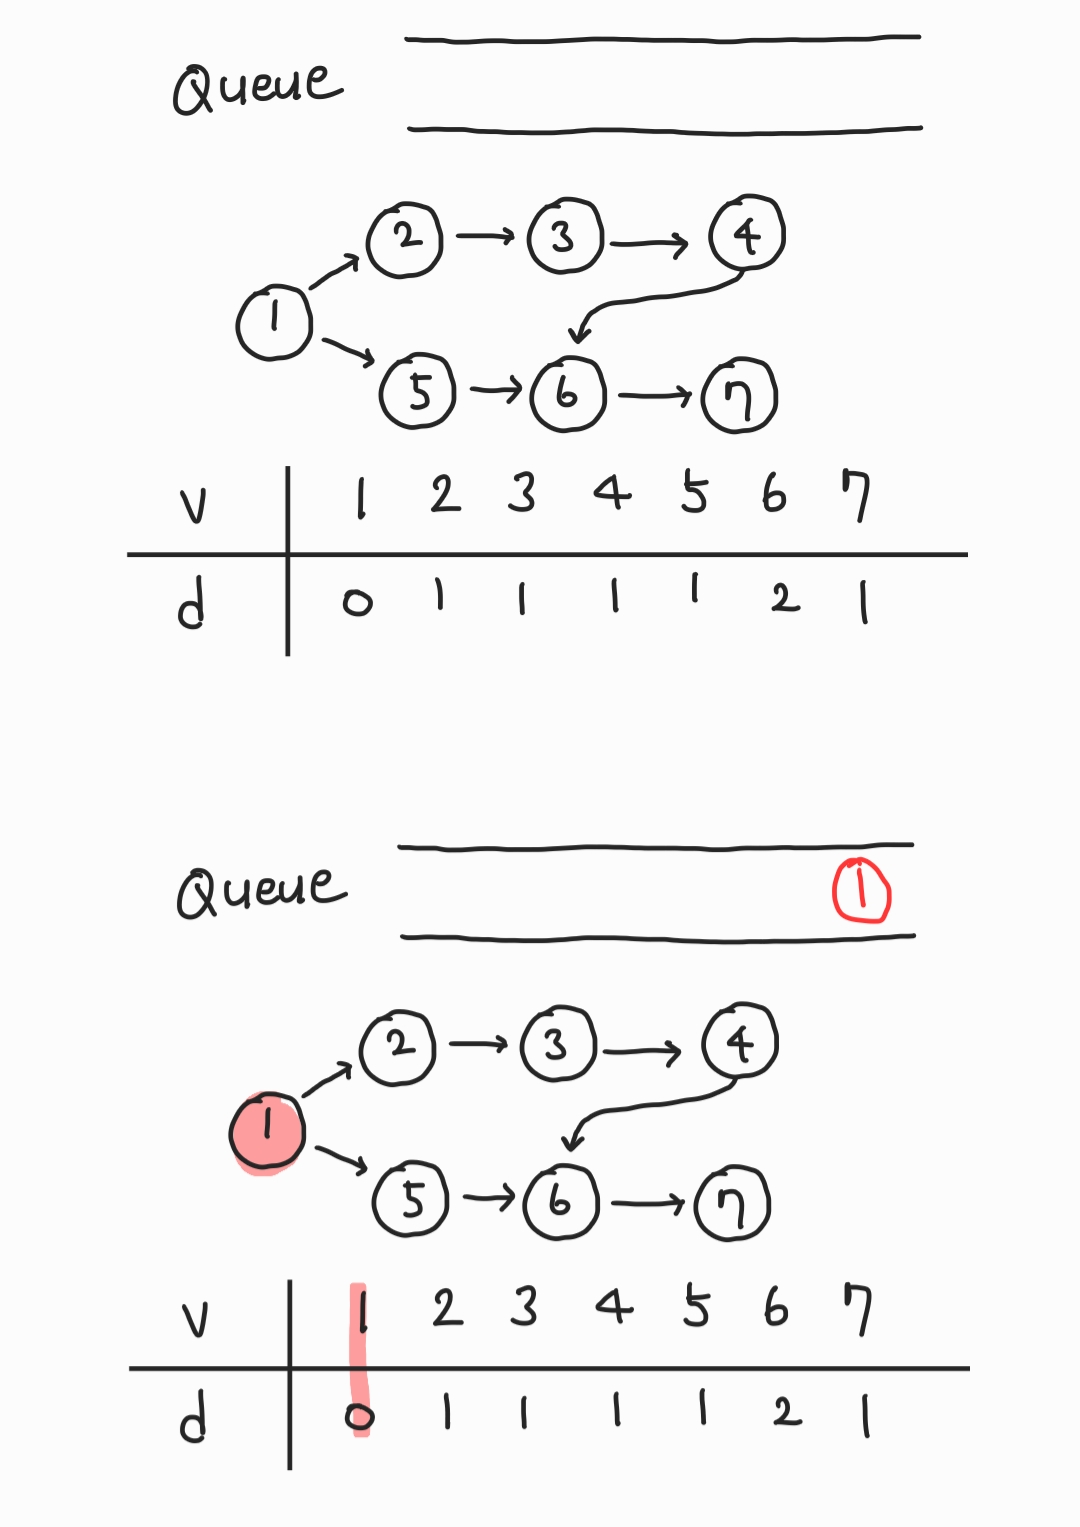 Queue
2 3 4
1
5 6 7
V 1 2 3 4 5 6 7
d 0 1 1 1 1 2 1
Queue 1
2 3 4
1
5 6 7
V 1 2 3 4 5 6 7
d 0 1 1 1 1 2 1